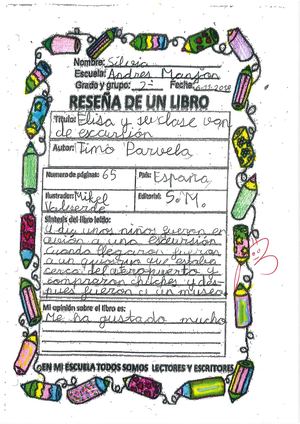 Nombre: Silvia
Escuela: Andrés Manjón
Grado y grupo: 2º Fecha:
RESEÑA DE UN LIBRO
Título: Elisa y su clase van
de excursión
Autor: Timo Parvela
Numero de páginas: 65 País: España
Ilustrador: Mikel Editorial: S.M.
Valverde
Síntesis del libro leído:
Un día unos niños fueron en
avión a una excursión.
Cuando llegaron fueron
a un quiosco que estaba
cerca del aeropuerto y
compraron chuches y des-
pues fueron a un museo
Mi opinión sobre el libro es:
Me ha gustado mucho
EN MI ESCUELA TODOS SOMOS LECTORES Y ESCRITORES